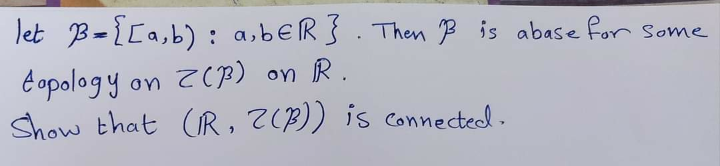 let β = {[a,b) : a,b ∈ ℝ}. Then β is abase for some
topology on τ(β) on ℝ.
Show that (ℝ, τ(β)) is connected.